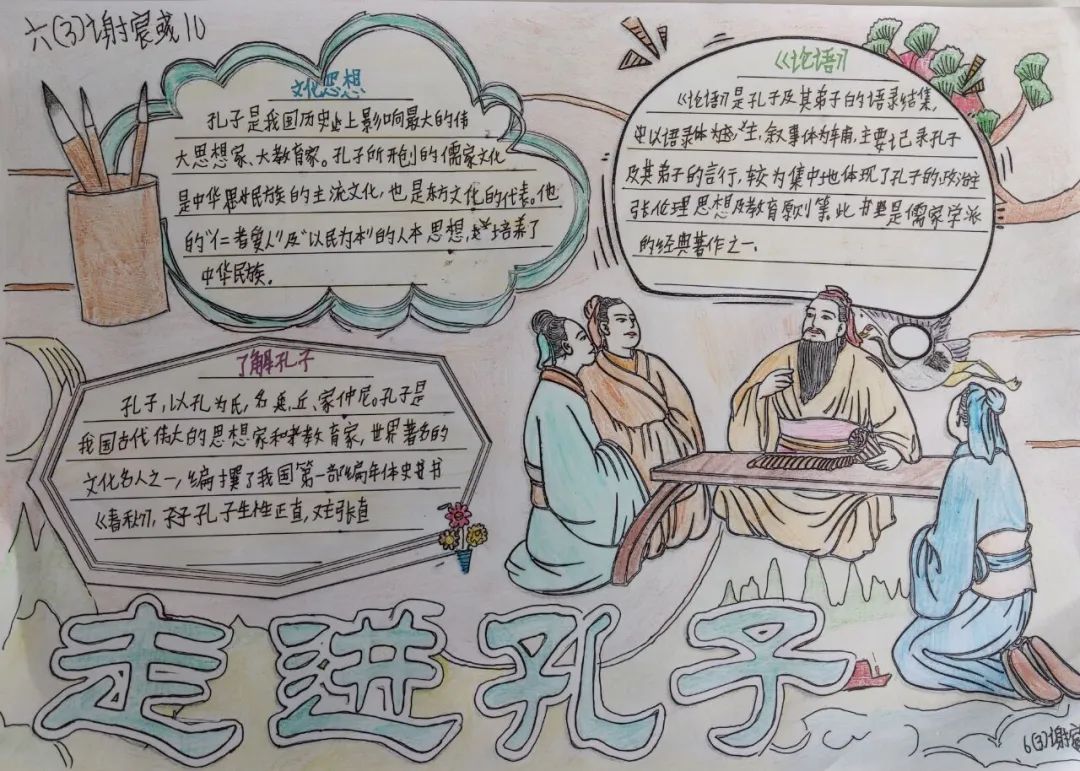 六(3)谢宸彧10
文化思想
孔子是我国历史上影响最大的伟
大思想家、大教育家。孔子所开创的儒家文化
是中华民族的主流文化,也是东方文化的代表。他
的“仁者爱人”及“以民为本”的人本思想,培养了
中华民族。
《论语》
《论语》是孔子及其弟子的语录结集,
以语录体为主,叙事体为辅,主要记录孔子
及其弟子的言行,较为集中地体现了孔子的政治主
张伦理思想及教育原则等。此书是儒家学派
的经典著作之一。
了解孔子
孔子,以孔为氏,名丘、家仲尼。孔子是
我国古代伟大的思想家和教育家,世界著名的
文化名人之一,编撰了我国第一部编年体史书
《春秋》,孔子生性正直,又主张直
走进孔子
6(3)谢宸